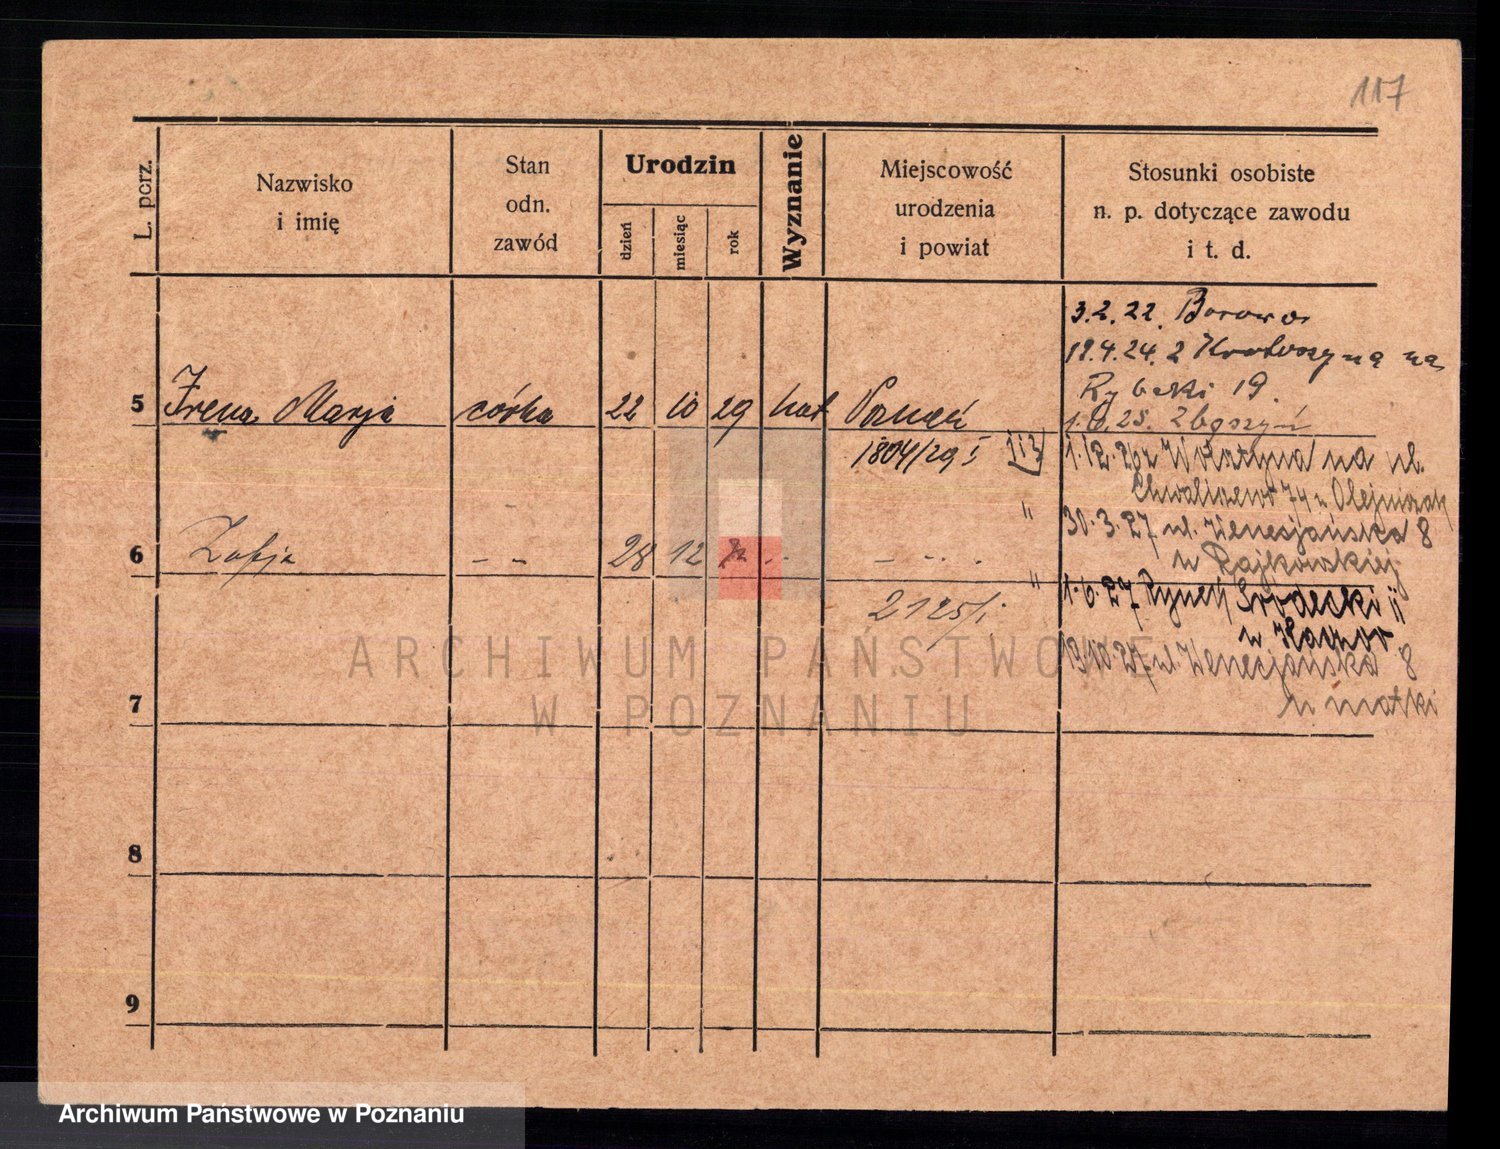 117
L. porz.
Nazwisko
i imię
Stan
odn.
zawód
Urodzin
dzień
miesiąc
rok
Wyznanie
Miejscowość
urodzenia
i powiat
Stosunki osobiste
n. p. dotyczące zawodu
i t. d.
3.2.22. Borowo
19.4.24. z Krotoszyna na
Rybaki 19.
5 Irena Marja córka 22 10 29 kat Poznań
25. Zbąszyń
1804/29 I
1.12.26 z na ul.
Chwaliszewo 74 u Olejniczak
" 30.3.27 ul. Wenecjańska 8
u Rajkowskiej
6 Zofja - - 28 12 - -
" 1.6.27 Rynek Śródecki 11
u
2125/I
19/10.27 ul. Wenecjańska 8
u matki
7
8
9
ARCHIWUM PAŃSTWOWE
W POZNANIU
Archiwum Państwowe w Poznaniu